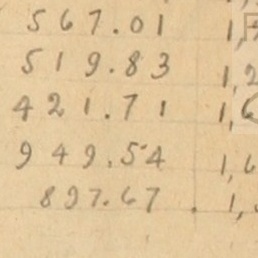 567.01 1,
519.83 1,2
421.71 1,6
949.54 1,6
897.67 1,